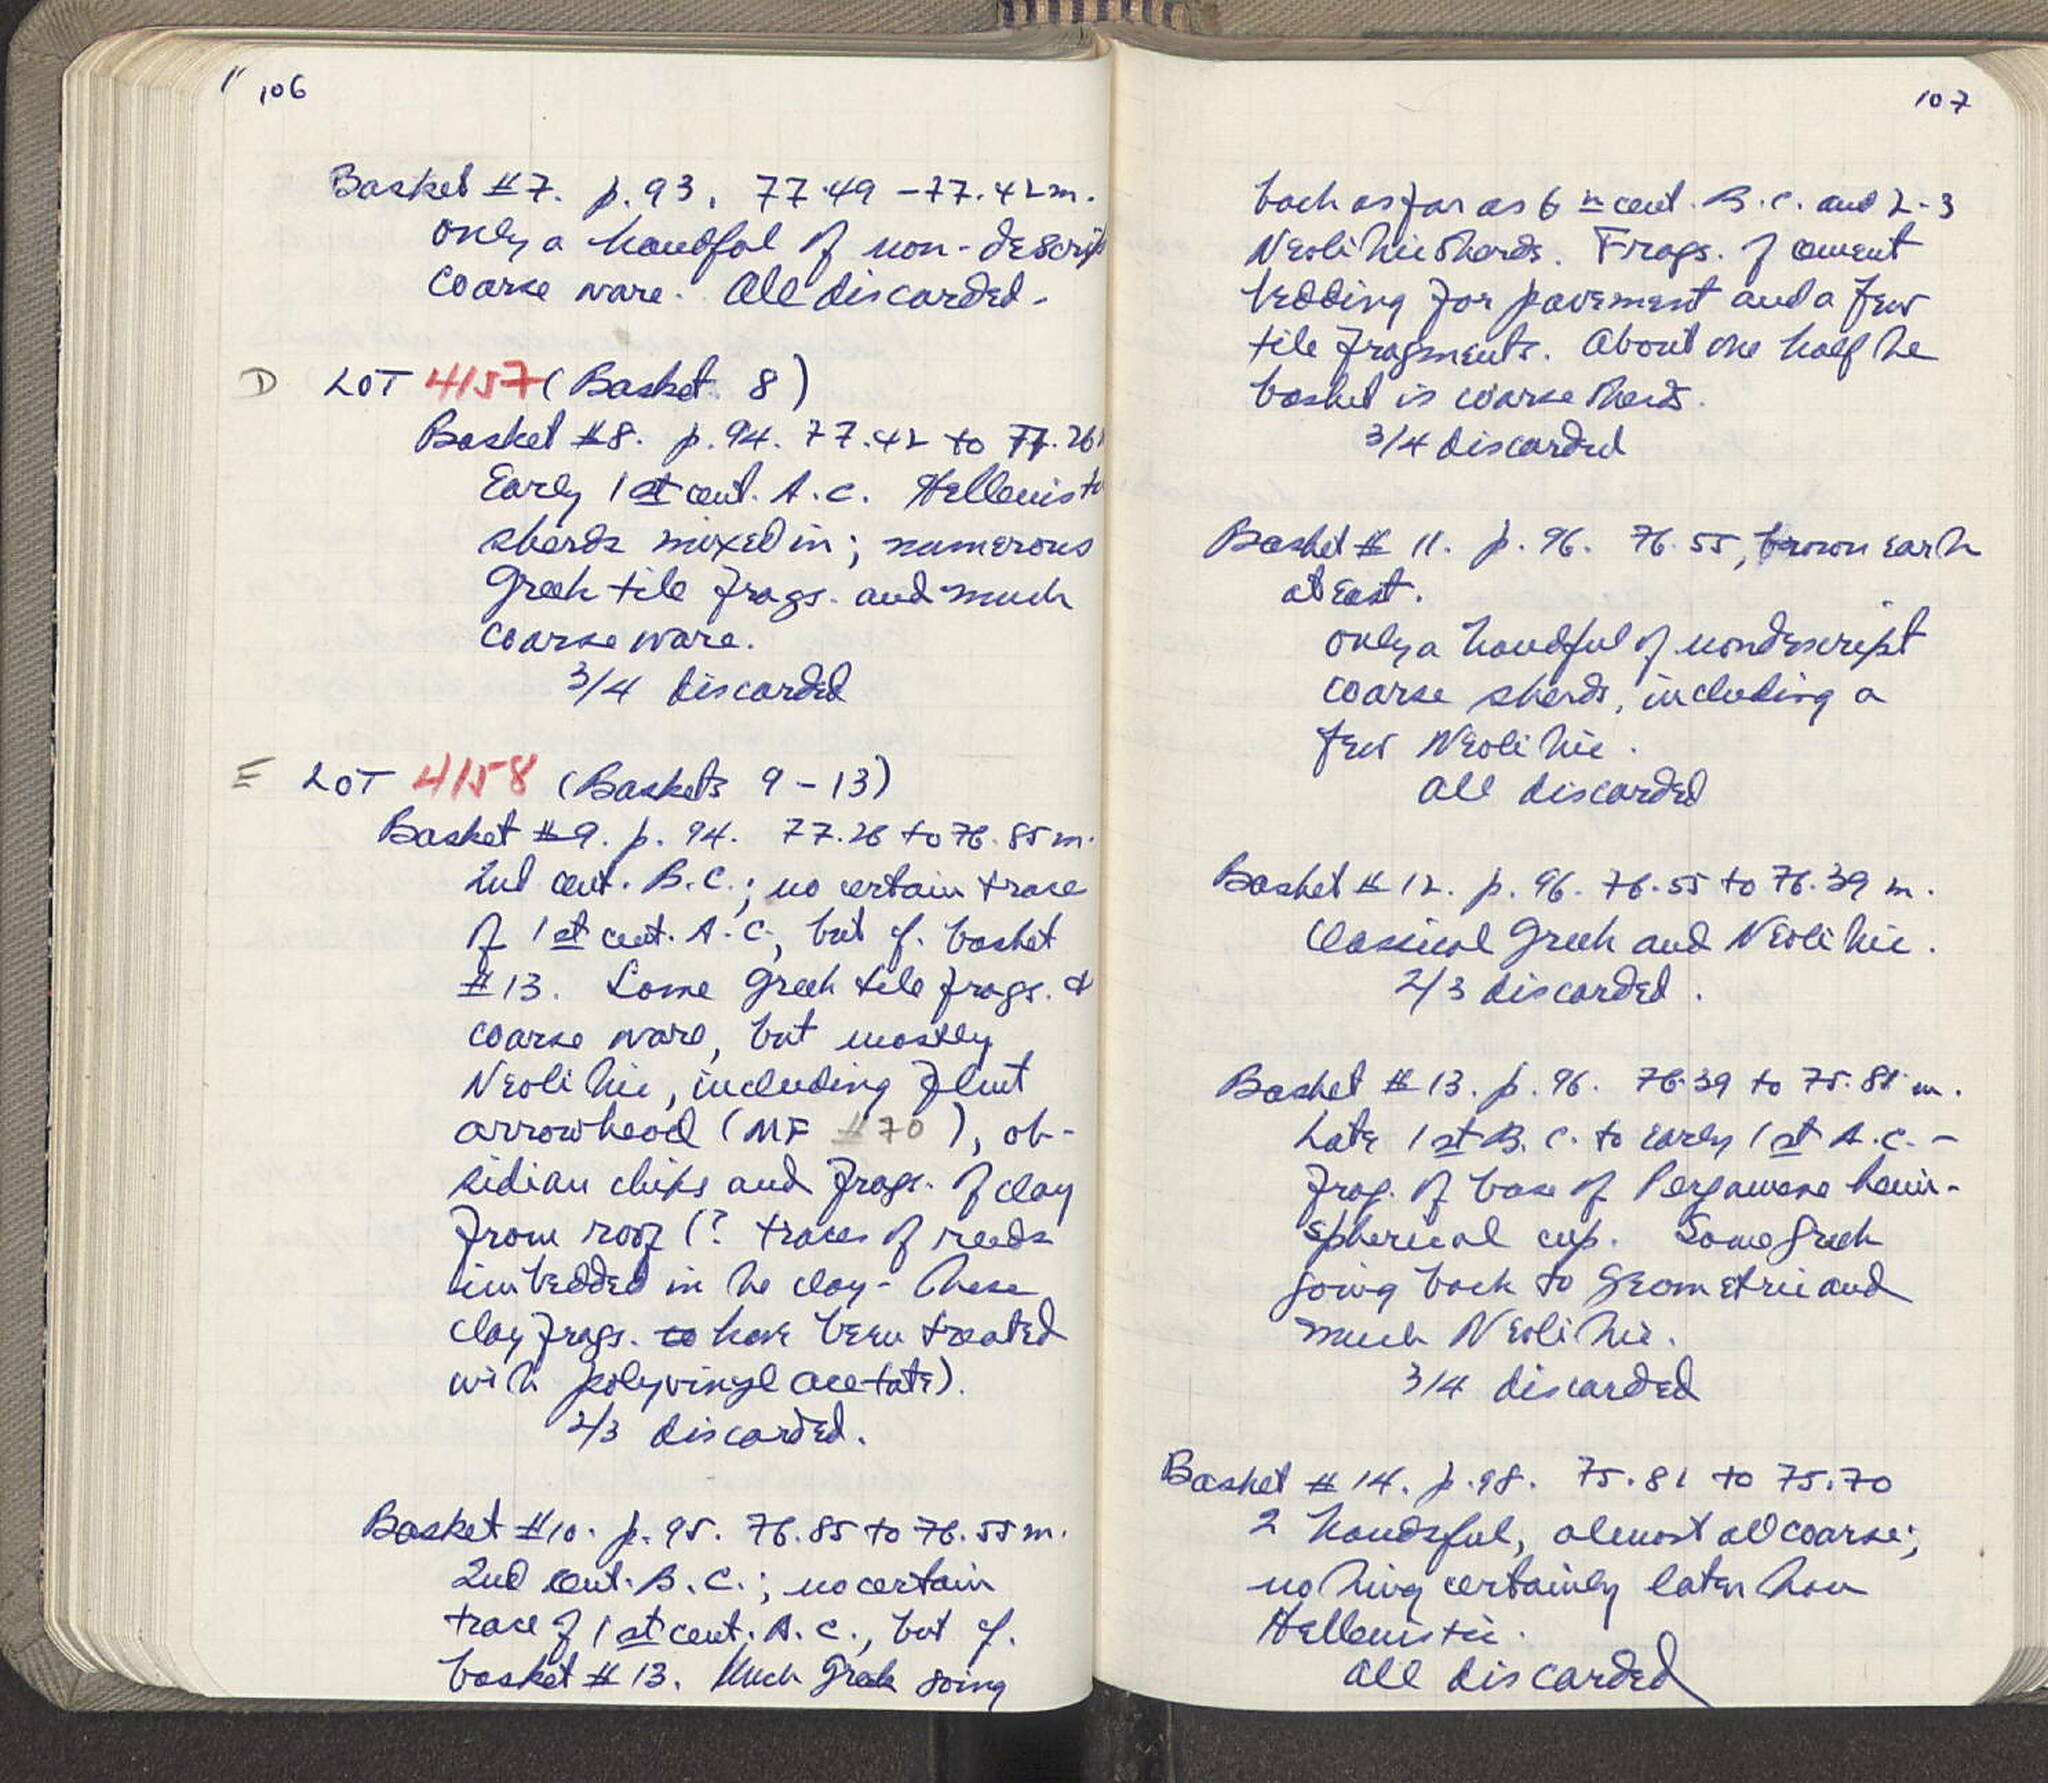 106
Basket #7. p. 93. 77.49 - 77.42 m.
only a handful of non-descript
coarse ware. All discarded.
D LOT 4157 (Basket 8)
Basket #8. p. 94. 77.42 to 77.26
Early 1st cent. A.C. Hellenistic
sherds mixed in; numerous
Greek tile frags. and much
coarse ware.
3/4 discarded
E LOT 4158 (Baskets 9-13)
Basket #9. p. 94. 77.26 to 76.85 m.
2nd cent. B.C.; no certain trace
of 1st cent. A.C., but cf. basket
#13. Some Greek tile frags. &
coarse ware, but mostly
Neolithic, including flint
arrowhead (MF #70), ob-
sidian chips and frags. of clay
from roof (? traces of reeds
imbedded in the clay - these
clay frags. to have been treated
with polyvinyl acetate).
2/3 discarded.
Basket #10. p. 95. 76.85 to 76.55 m.
2nd cent. B.C.; no certain
trace of 1st cent. A.C., but cf.
basket #13. Much Greek going
107
back as far as 6th cent. B.C. and 2-3
Neolithic sherds. Frags. of cement
bedding for pavement and a few
tile fragments. About one half the
basket is coarse sherds.
3/4 discarded
Basket # 11. p. 96. 76.55, brown earth
at east.
only a handful of nondescript
coarse sherds, including a
few Neolithic.
All discarded
Basket # 12. p. 96. 76.55 to 76.39 m.
Classical Greek and Neolithic.
2/3 discarded.
Basket # 13. p. 96. 76.39 to 75.81 m.
Late 1st B.C. to early 1st A.C. -
Frag. of base of Pergamene hemi-
spherical cup. Some Greek
going back to Geometric and
much Neolithic.
3/4 discarded
Basket # 14. p. 98. 75.81 to 75.70
2 handsful, almost all coarse;
nothing certainly later than
Hellenistic.
All discarded